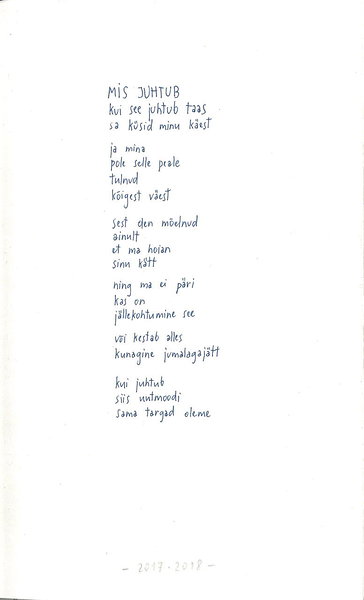 MIS JUHTUB
kui see juhtub taas
sa küsid minu käest
ja mina
pole selle peale
tulnud
kõigest väest
sest olen mõelnud
ainult
et ma hoian
sinu kätt
ning ma ei päri
kas on
jällekohtumine see
või kestab alles
kunagine jumalagajätt
kui juhtub
siis untmoodi
sama targad oleme
- 2017-2018 -